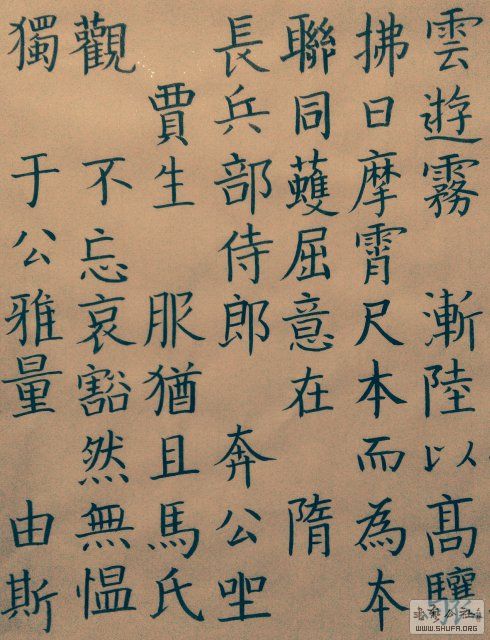 雲遊霧　漸陸以髙驤
拂日摩霄尺本而為本
聯同蠖屈意在　隋
長兵部侍郎　奔公坐
賈生　服猶且馬氏
觀　不忘哀豁然無愠
獨　于公雅量　由斯
WWW.SHUFA.ORG